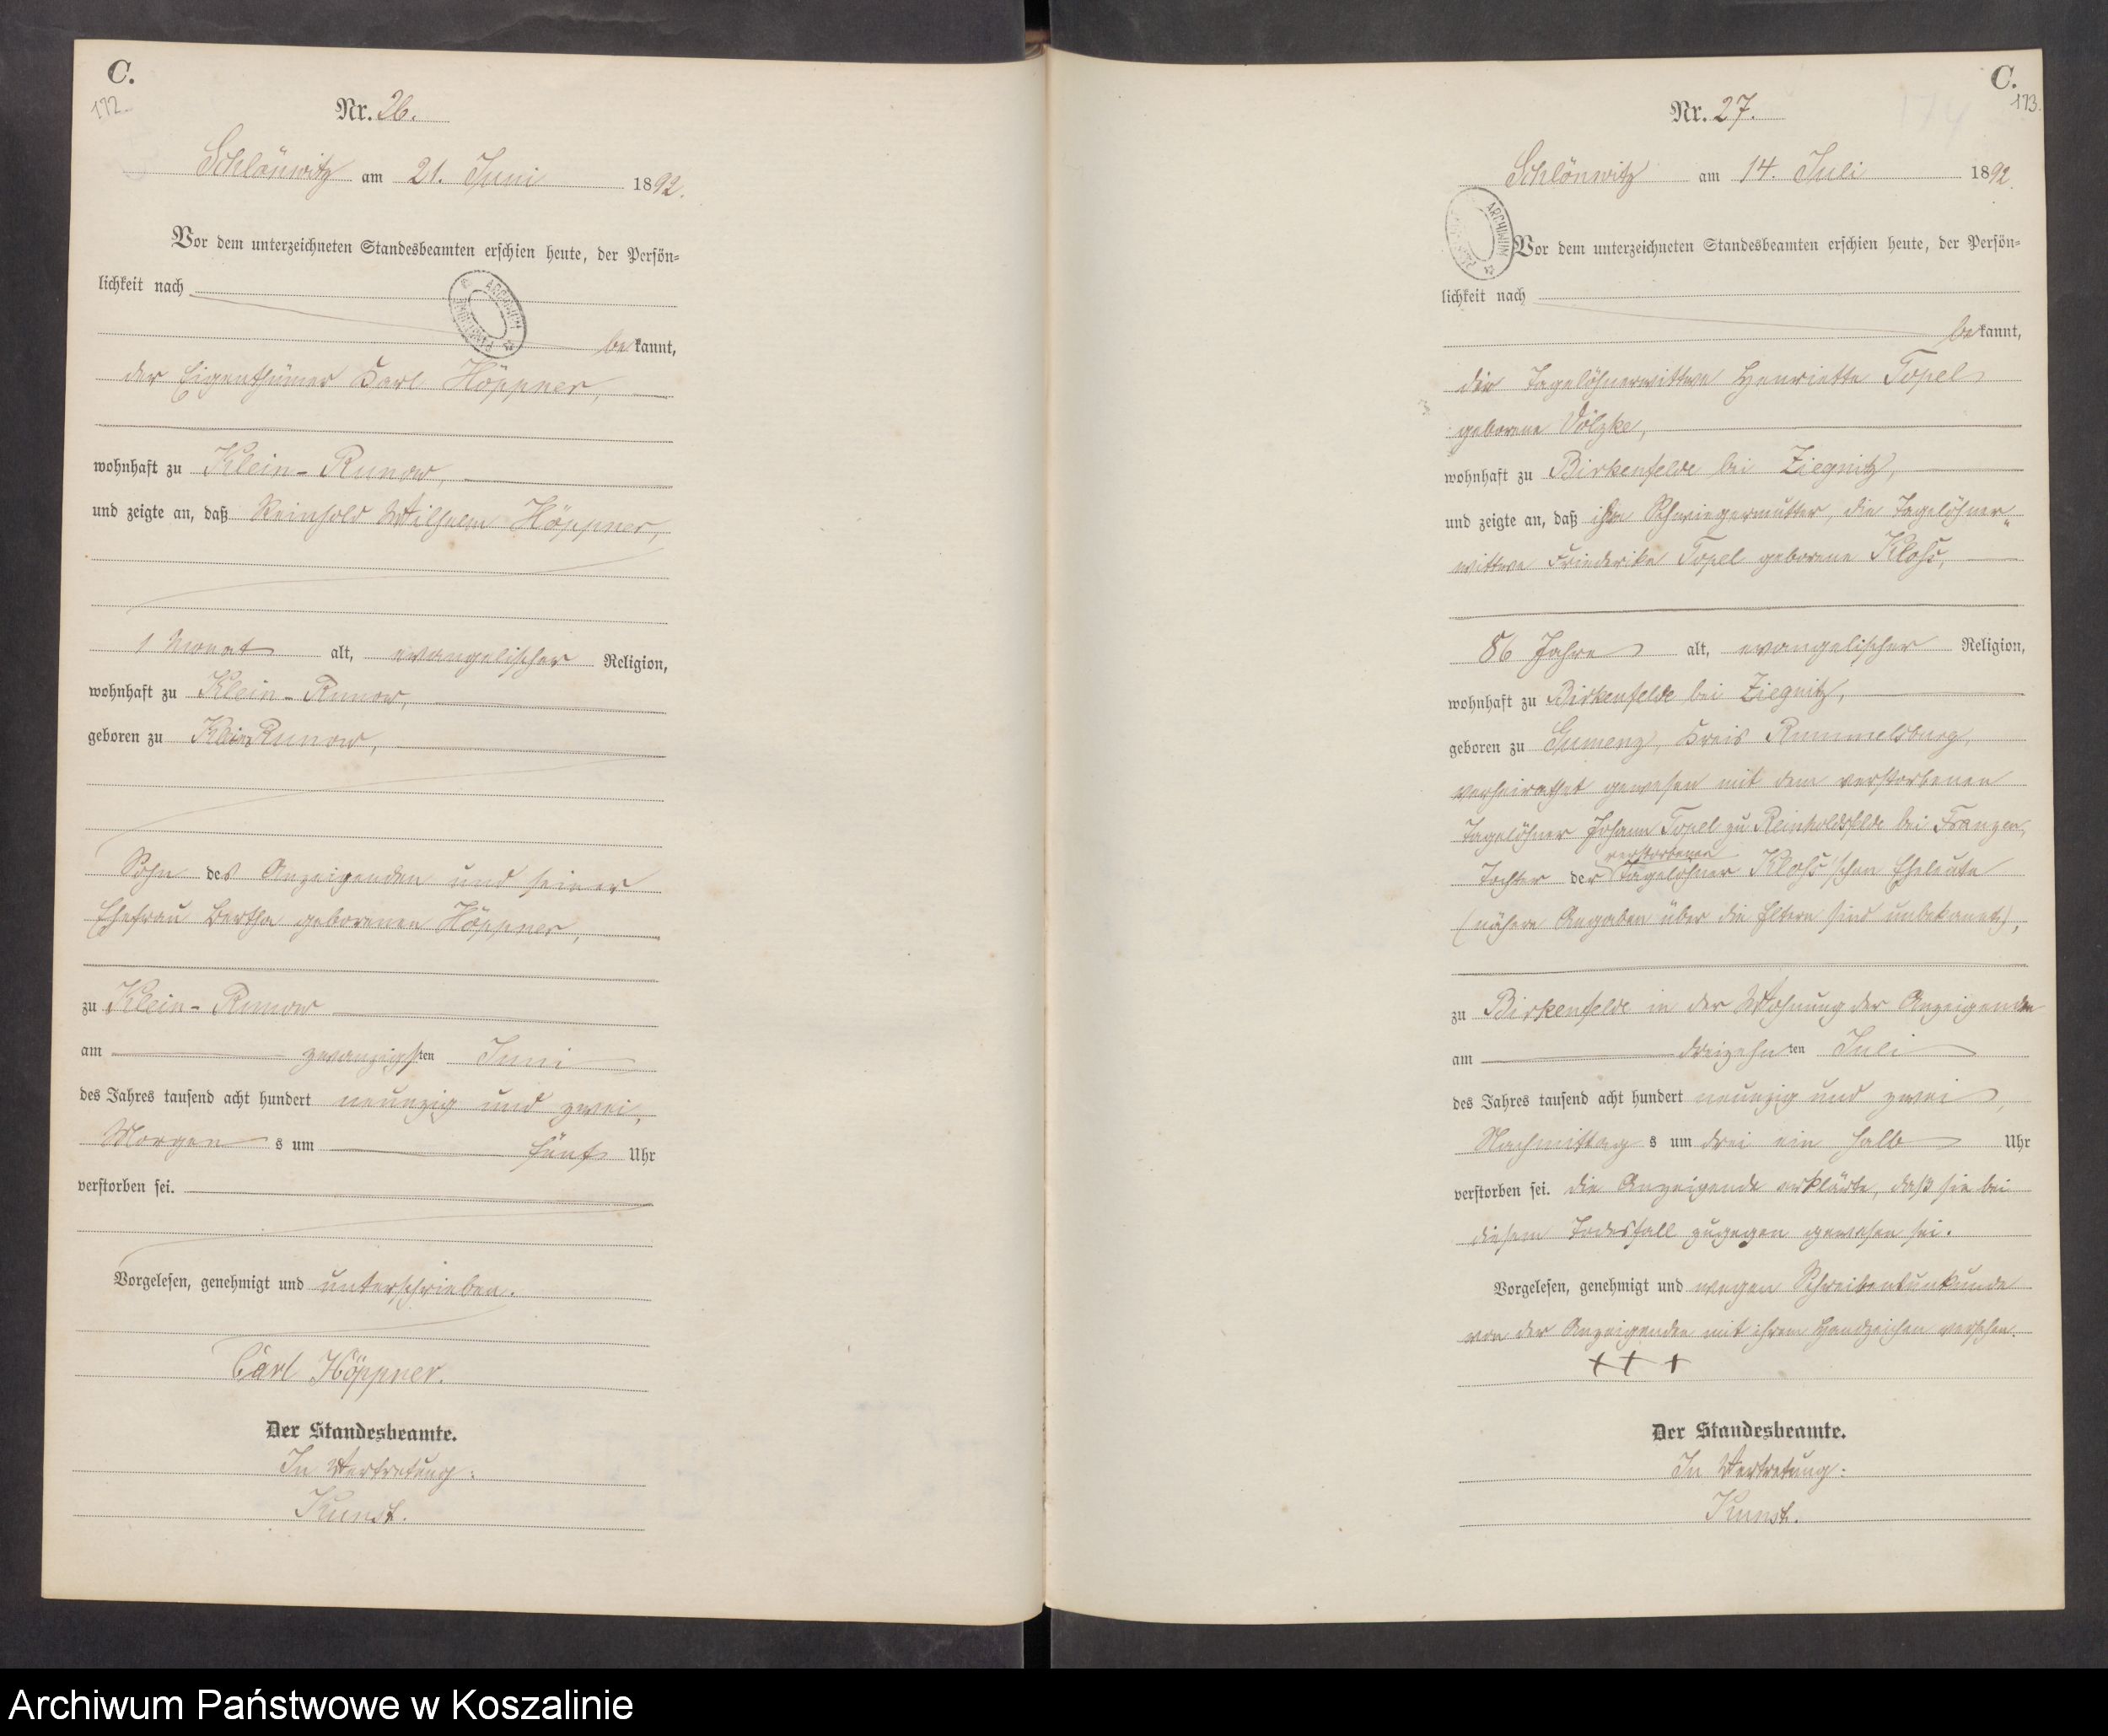 C.
172.
Nr. 26.
Schlönwitz am 21. Juni 1892.
Vor dem unterzeichneten Standesbeamten erschien heute, der Persön=
lichkeit nach
bekannt,
der Eigenthümer Karl Höppner,
wohnhaft zu Klein-Runow,
und zeigte an, daß Reinhold Wilhelm Höppner,
1 Monat alt, evangelischer Religion,
wohnhaft zu Klein-Runow,
geboren zu Klein Runow,
Sohn des Anzeigenden und seiner
Ehefrau Bertha geborenen Höppner,
zu Klein-Runow
am zwanzigsten Juni
des Jahres tausend acht hundert neunzig und zwei,
Morgens um fünf Uhr
verstorben sei.
Vorgelesen, genehmigt und unterschrieben.
Carl Höppner.
Der Standesbeamte.
In Vertretung:
Kunst.
C.
173.
Nr. 27.
Schlönwitz am 14. Juli 1892.
ARCHIWUM
Vor dem unterzeichneten Standesbeamten erschien heute, der Persön=
lichkeit nach
bekannt,
die Tagelöhnerwittwe Henriette Topel
geborene Völzke,
wohnhaft zu Birkenfelde bei Ziegnitz,
und zeigte an, daß ihre Schwiegermutter, die Tagelöhner„
wittwe Friederike Topel geborene Kloß,
86 Jahre alt, evangelischer Religion,
wohnhaft zu Birkenfelde bei Ziegnitz,
geboren zu Gumenz, Kreis Rummelsburg,
verheirathet gewesen mit dem verstorbenen
Tagelöhner Johann Topel zu Reinholdsfelde bei Franzen,
verstorbenen
Tochter der Tagelöhner Kloß'schen Eheleute
(nähere Angaben über die Eltern sind unbekannt),
zu Birkenfelde in der Wohnung der Anzeigenden
am dreizehnten Juli
des Jahres tausend acht hundert neunzig und zwei,
Nachmittags um drei ein halb Uhr
verstorben sei. Die Anzeigende erklärte, daß sie bei
diesem Todesfall zugegen gewesen sei.
Vorgelesen, genehmigt und wegen Schreibensunkunde
von der Anzeigenden mit ihrem Handzeichen versehen.
+++
Der Standesbeamte.
In Vertretung:
Kunst.
Archiwum Państwowe w Koszalinie